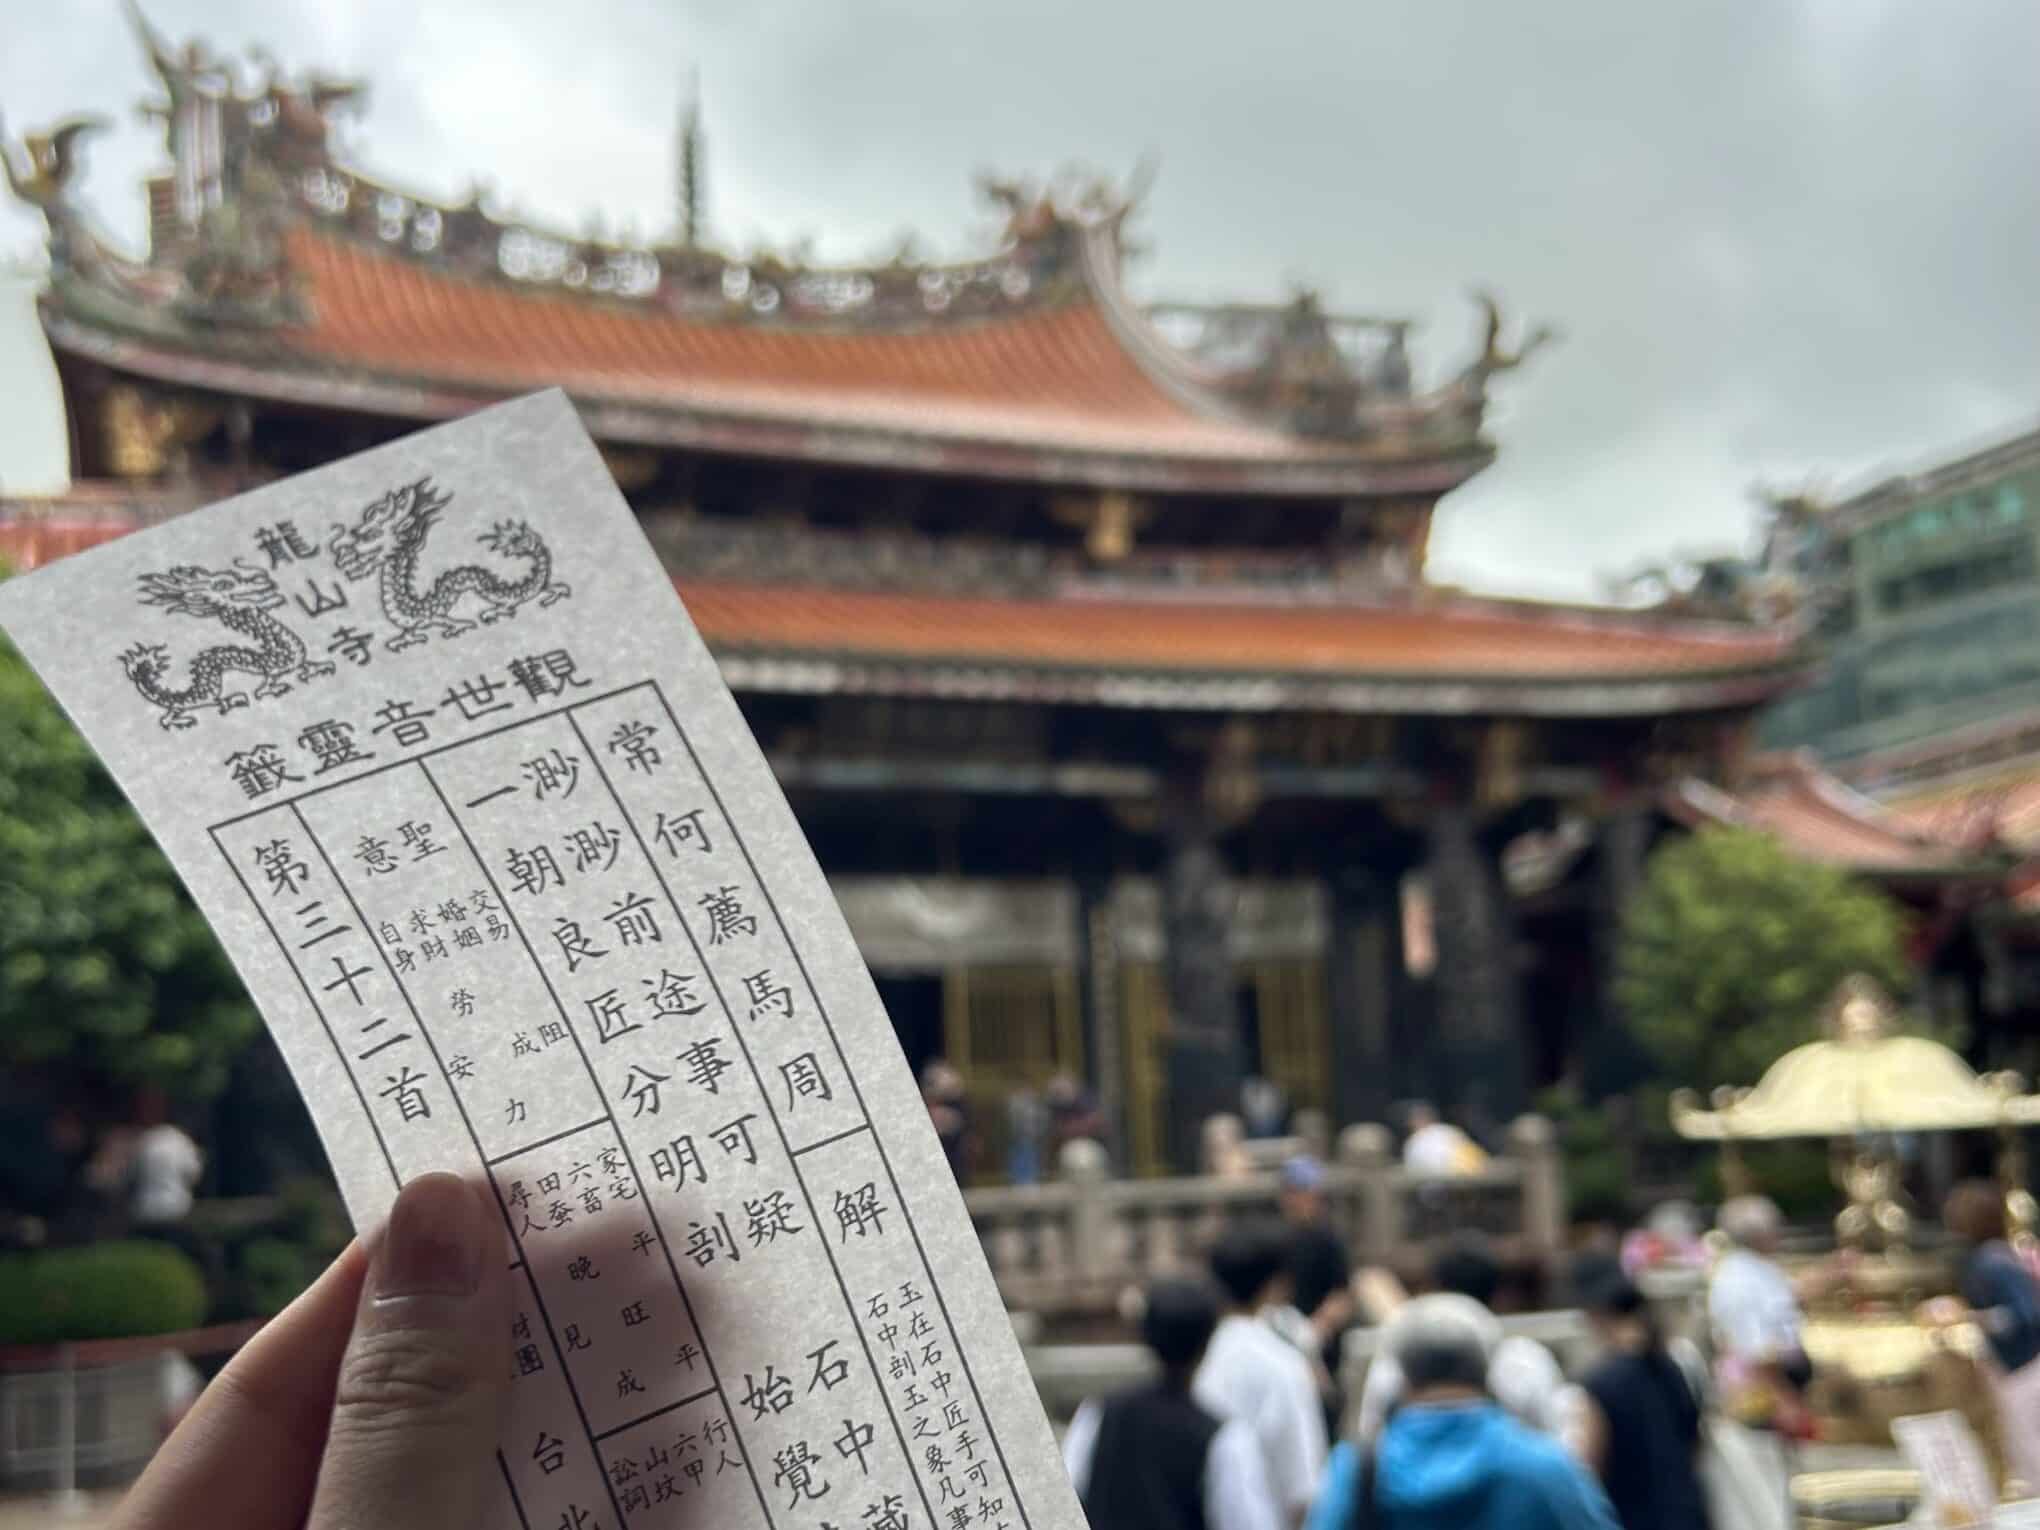 龍山寺
觀世音靈籤
常何薦馬周
解
玉在石中匠手可知
石中剖玉之象凡事
渺渺前途事可疑
石中藏
一朝良匠分明剖
始覺
聖意
交易 阻
婚姻 成
求財 力
自身 勞安
家宅 平平
六畜 旺
田蚕 成
尋人 晚見
行人
六甲
山坟
訟詞
第三十二首
財團
台北